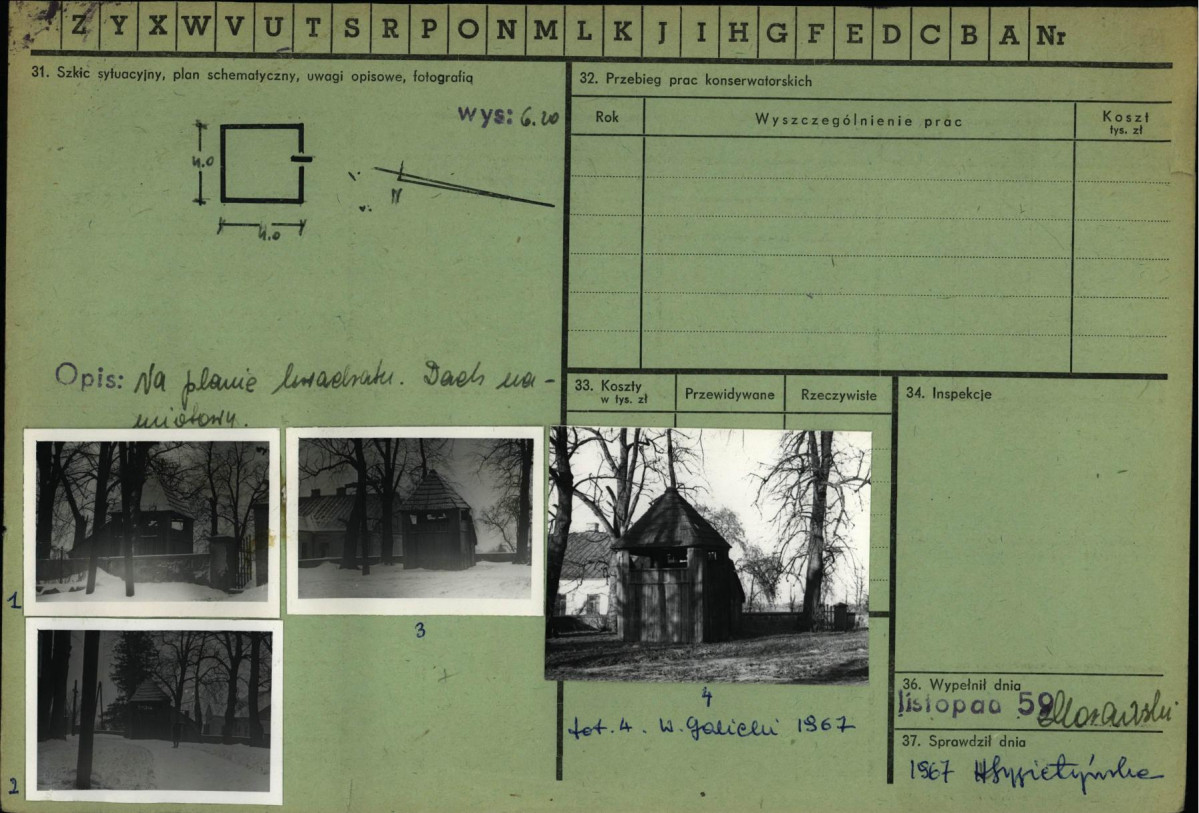 Z Y X W V U T S R P O N M L K J I H G F E D C B A Nr
31. Szkic sytuacyjny, plan schematyczny, uwagi opisowe, fotografią
wys: 6.20
4.0
N
4.0
Opis: Na planie kwadratu. Dach na-
miotowy.
1
2
3
4
fot. 4. W. Galicki 1967
32. Przebieg prac konserwatorskich
Rok
Wyszczególnienie prac
Koszt
tys. zł
33. Koszty
w tys. zł
Przewidywane
Rzeczywiste
34. Inspekcje
36. Wypełnił dnia
listopad 59
37. Sprawdził dnia
1967